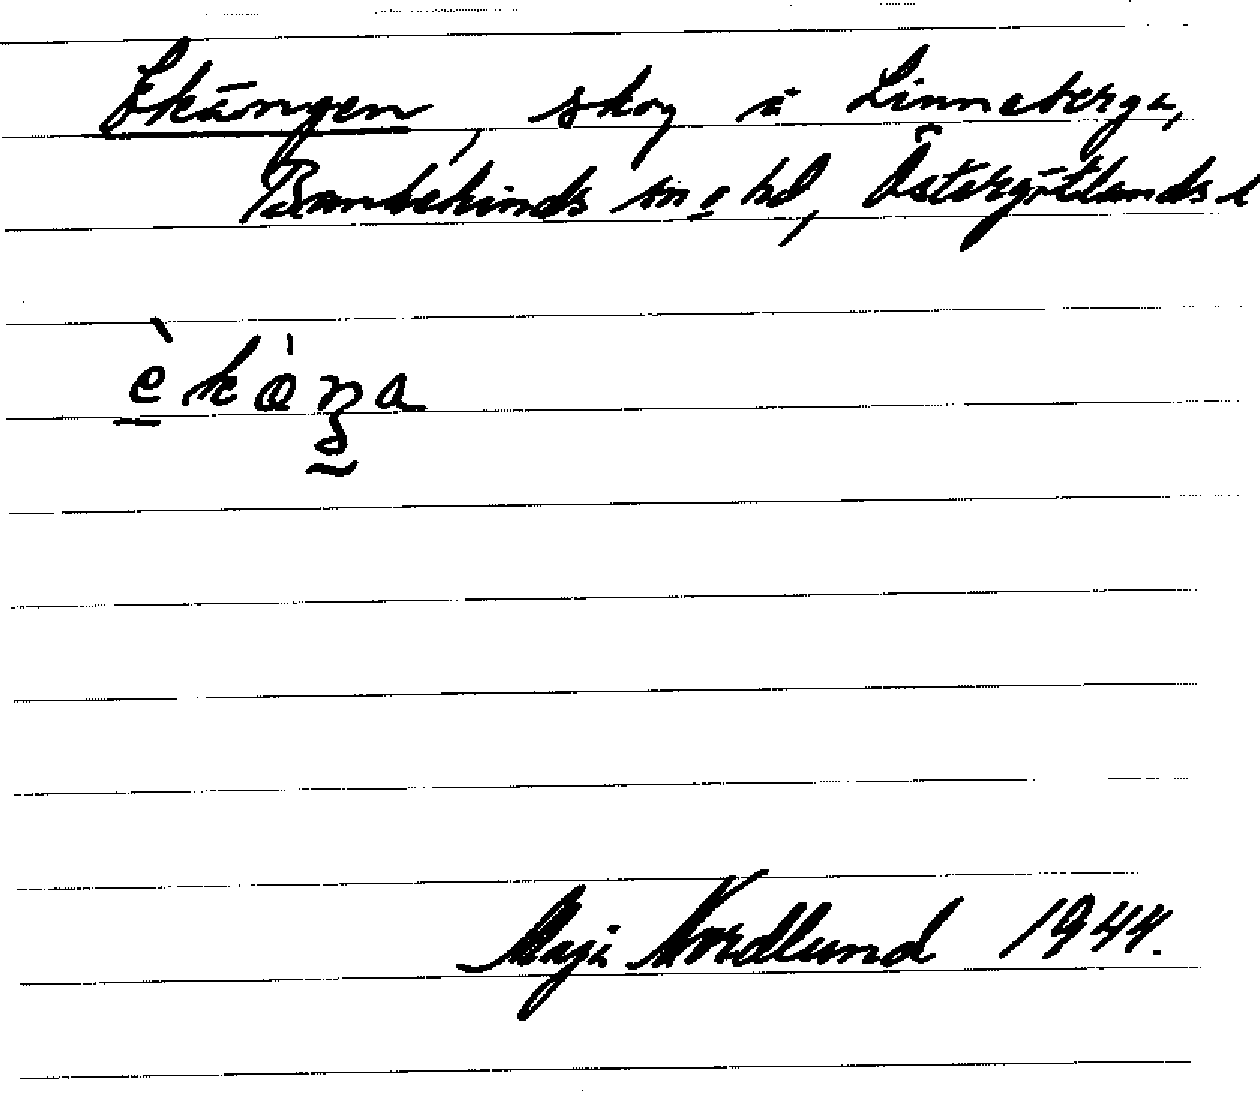 Ekängen, skog å Linneberga,
Bankekinds sn o hd, Östergötlands l
èkạ̈ŋa
Maja Nordlund 1944.